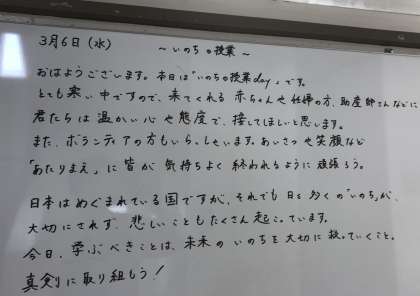 3月6日（水）
〜いのちの授業〜
おはようございます。本日は"いのちの授業day"です。
とても寒い中ですので、来てくれる赤ちゃんや妊婦の方、助産師さんなどに
君たちは温かい心や態度で、接してほしいと思います。
また、ボランティアの方もいらっしゃいます。あいさつや笑顔など
「あたりまえ」に皆が気持ちよく終われるように頑張ろう。
日本はめぐまれている国ですが、それでも日々多くの"いのち"が、
大切にされず、悲しいこともたくさん起こっています。
今日、学ぶべきことは、未来のいのちを大切に扱っていくこと。
真剣に取り組もう！